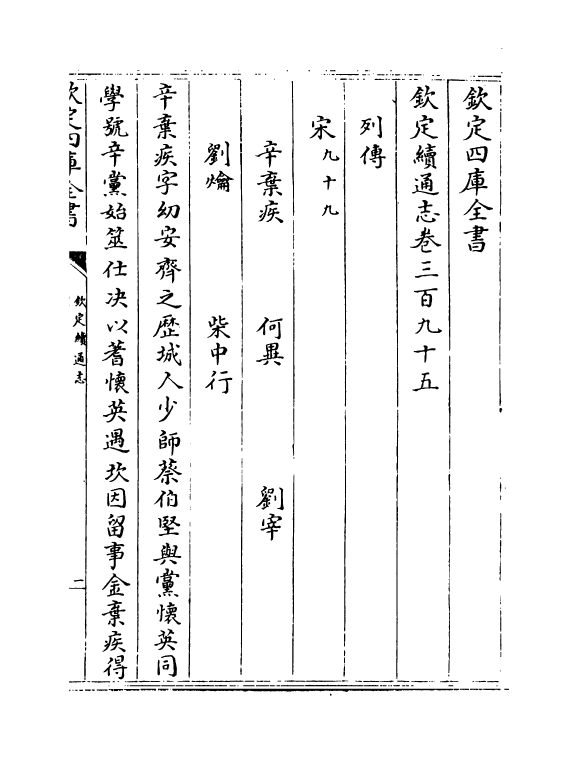 欽定四庫全書
欽定續通志卷三百九十五
列傳
宋九十九
辛棄疾　何異　劉宰
劉爚　柴中行
辛棄疾字幼安齊之歷城人少師蔡伯堅與黨懷英同
學號辛黨始筮仕决以蓍懷英遇坎因留事金棄疾得
欽定四庫全書
欽定續通志
二